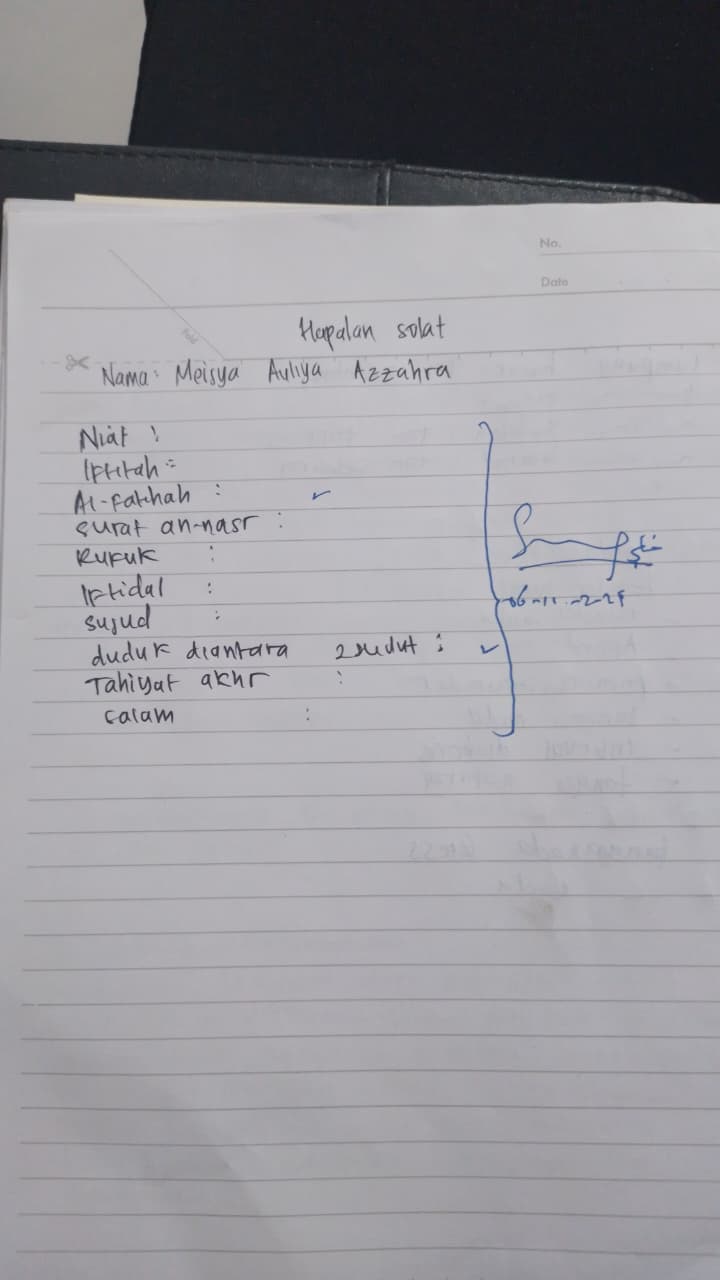 No.
Date
Hapalan solat
Nama: Meisya Auliya Azzahra
Niat :
Iftitah =
Al-fatihah : ✓
surat an-nasr :
Rukuk :
Iktidal :
sujud :
duduk diantara 2 sudut : ✓
Tahiyat akhr :
salam :